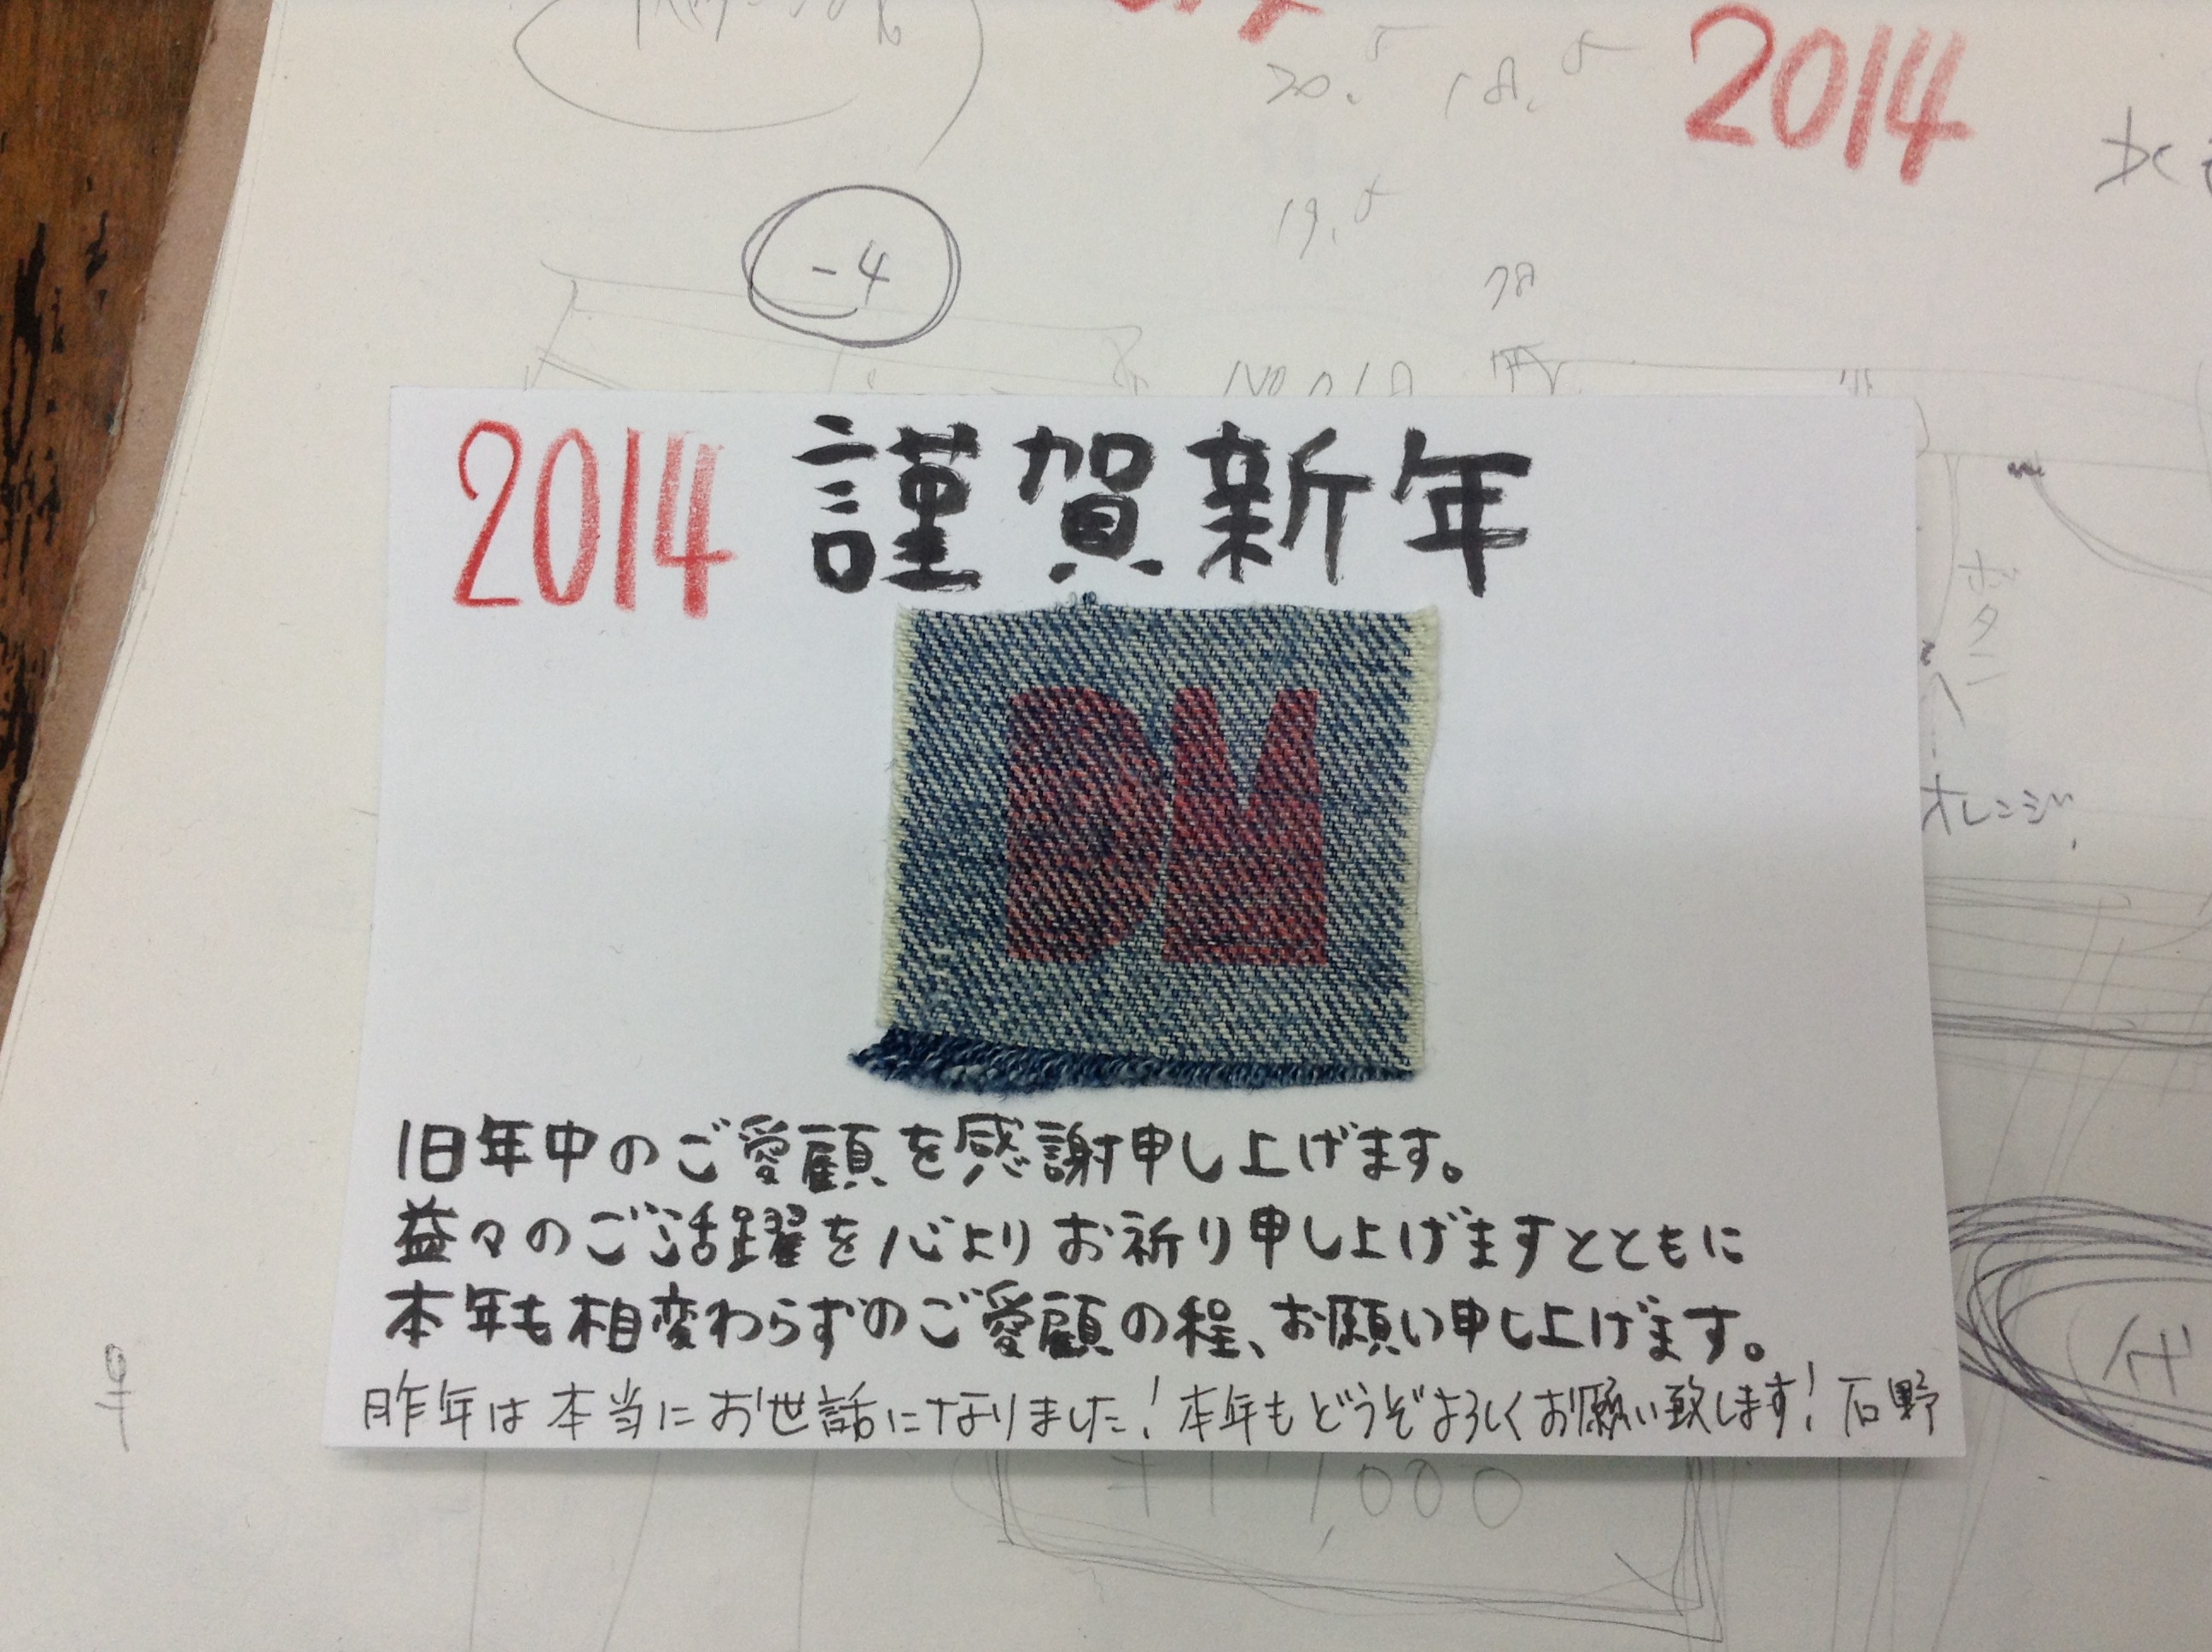 2014
-4
19.5
2014 謹賀新年
DM
ボタン
オレンジ
旧年中のご愛顧を感謝申し上げます。
益々のご活躍を心よりお祈り申し上げますとともに
本年も相変わらずのご愛顧の程、お願い申し上げます。
昨年は本当にお世話になりました!本年もどうぞよろしくお願い致します!石野